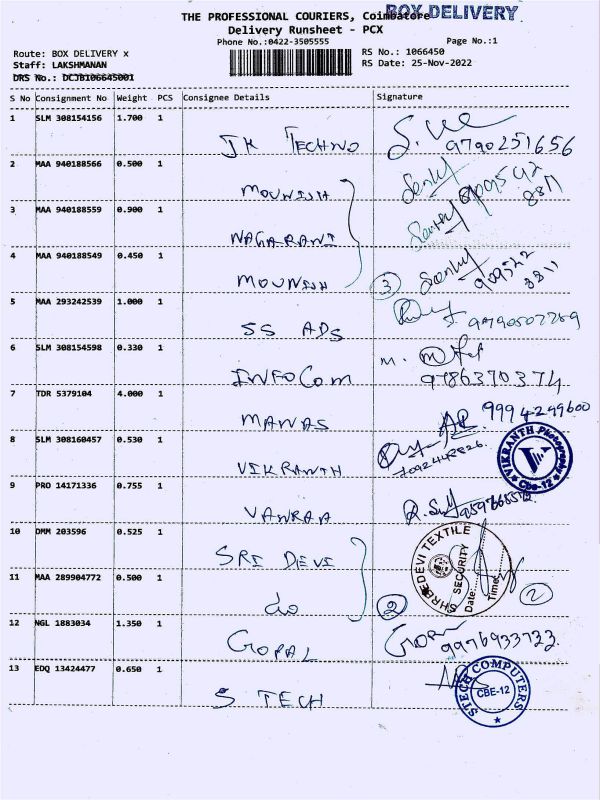 BOX DELIVERY
THE PROFESSIONAL COURIERS, Coimbatore
Delivery Runsheet - PCX
Phone No.:0422-3505555 Page No.:1
Route: BOX DELIVERY x RS No.: 1066450
Staff: LAKSHMANAN RS Date: 25-Nov-2022
DRS No.: DCJB106645001
S No Consignment No Weight PCS Consignee Details Signature
1 SLM 308154156 1.700 1
JK TECHNO 9790251656
2 MAA 940188566 0.500 1
MOUNISH
3 MAA 940188559 0.900 1
NAGARANI
4 MAA 940188549 0.450 1
MOUNISH 3
5 MAA 293242539 1.000 1
SS ADS
6 SLM 308154598 0.330 1
INFOCOM 9786370374
7 TDR 5379104 4.000 1
MANAS 9994299600
8 SLM 308160457 0.530 1
VIKRANTH
VIKRANTH Photography
Cbe-12
9 PRO 14171336 0.755 1
10 DMM 203596 0.525 1
SRI DEVI
SHREEDEVI TEXTILE
SECURITY
Date:
Time:
11 MAA 289904772 0.500 1
do 2 2
12 NGL 1883034 1.350 1
GOPAL 9976933733
13 EDQ 13424477 0.650 1
S TECH
STECH COMPUTERS
CBE-12